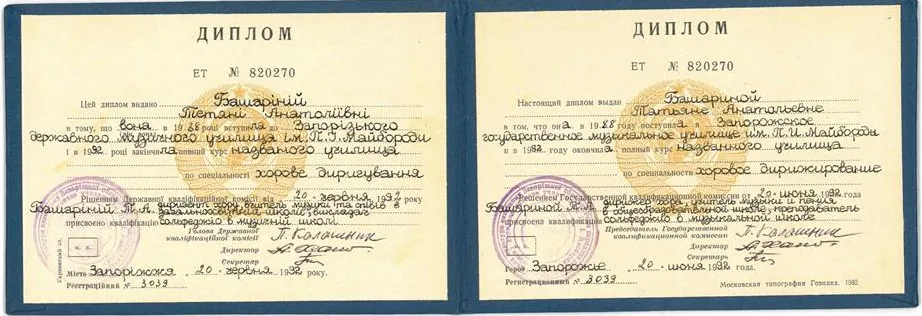 ДИПЛОМ
ЕТ № 820270
Цей диплом видано Башаріній
Тетяні Анатоліївні
в тому, що вона в 1988 році вступила до Запорізького
державного музичного училища ім. П.І. Майбороди
і в 1992 році закінчила повний курс названого училища
по спеціальності хорове диригування
Рішенням Державної кваліфікаційної комісії від 20 червня 1992 року
Башаріній Т.А. присвоєно кваліфікацію диригент хору, вчитель музики та співів в
загальноосвітній школі, викладач
сольфеджіо в музичній школі
Голова Державної
кваліфікаційної комісії П. Калашник
Директор
Секретар
М. П.
Місто Запоріжжя 20 червня 1992 року.
Реєстраційний № 3039
ДИПЛОМ
ЕТ № 820270
Настоящий диплом выдан Башариной
Татьяне Анатольевне
в том, что она в 1988 году поступила в Запорожское
государственное музыкальное училище им. П.И. Майбороды
и в 1992 году окончила полный курс названного училища
по специальности хоровое дирижирование
Решением Государственной квалификационной комиссии от 20 июня 1992 года
Башариной Т.А. присвоена квалификация дирижер хора, учитель музыки и пения
в общеобразовательной школе, преподаватель
сольфеджио в музыкальной школе
Председатель Государственной
квалификационной комиссии П. Калашник
Директор
Секретарь
Город Запорожье 20 июня 1992 года.
Регистрационный № 3039
Московская типография Гознака. 1982.